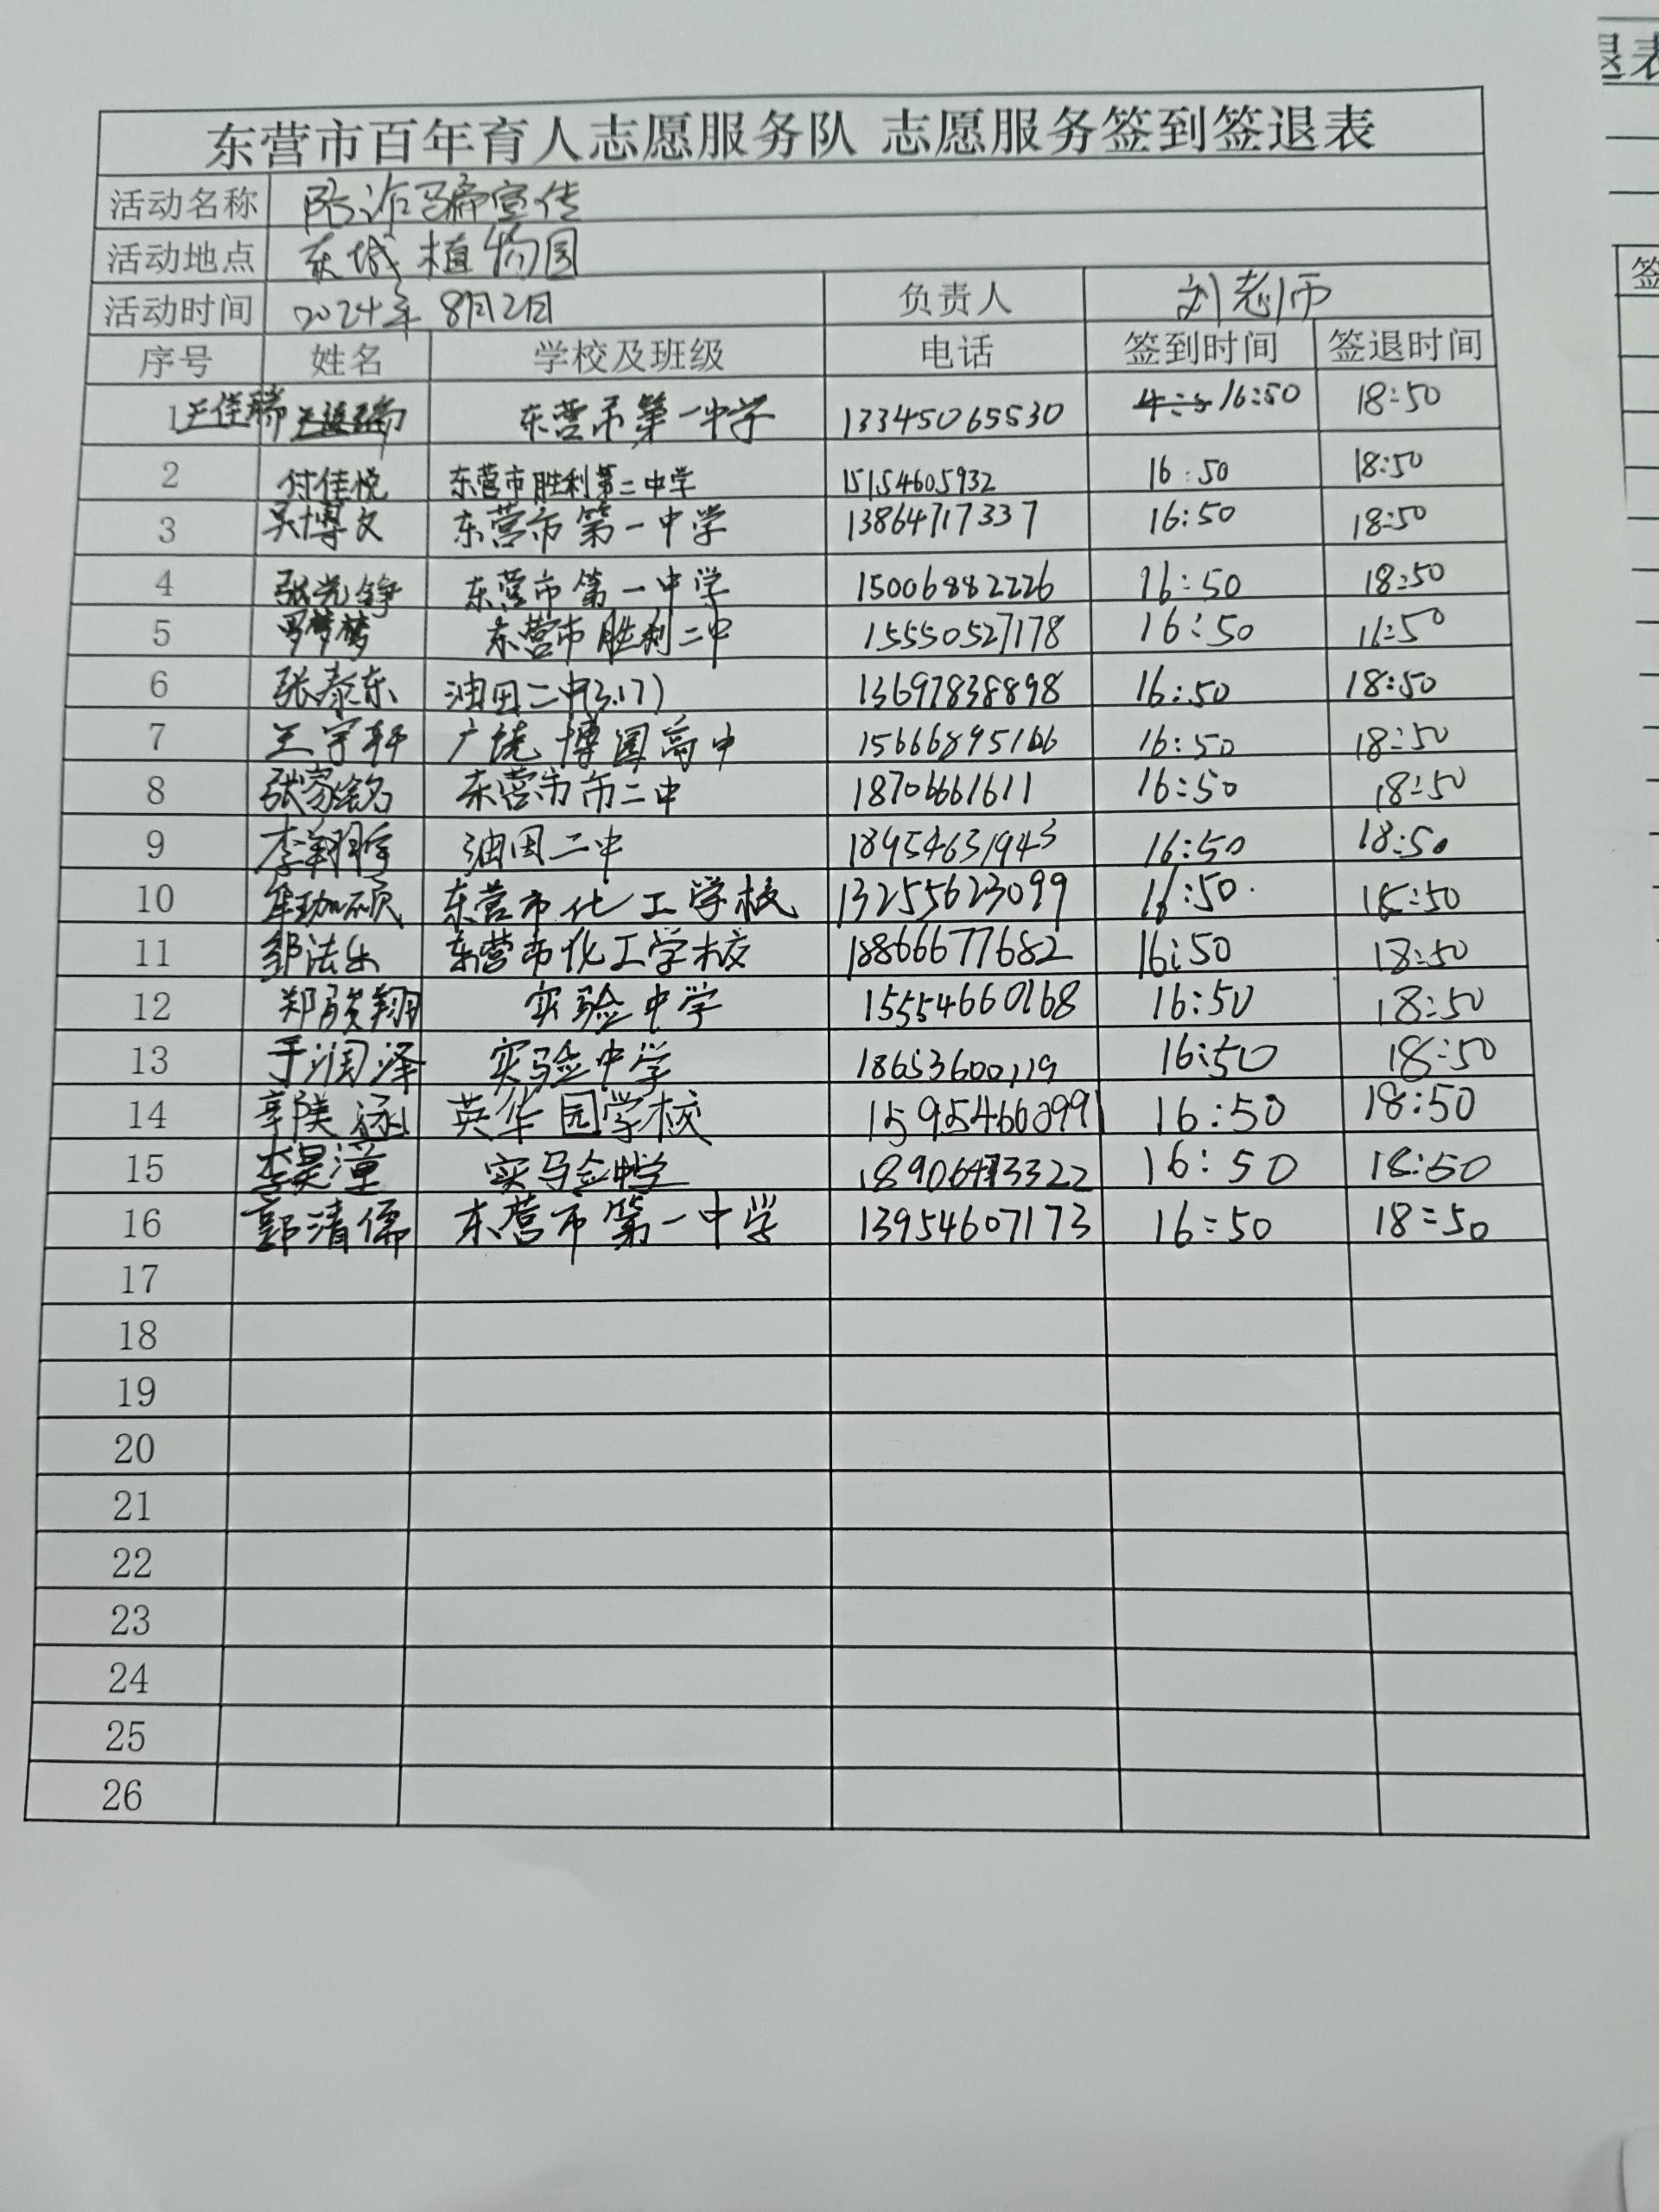 东营市百年育人志愿服务队 志愿服务签到签退表
活动名称 防诈骗宣传
活动地点 东城植物园
活动时间 2024年8月2日 负责人 刘老师
序号 姓名 学校及班级 电话 签到时间 签退时间
1 王佳瑞 东营市第一中学 13345065530 16:50 18:50
2 付佳悦 东营市胜利第二中学 15154605932 16:50 18:50
3 吴博文 东营市第一中学 13864717337 16:50 18:50
4 张光铮 东营市第一中学 15006882226 16:50 18:50
5 东营市胜利二中 15550527178 16:50 16:50
6 张泰东 油田二中(3.17) 13697838898 16:50 18:50
7 王宇轩 广饶博圆高中 15666895166 16:50 18:50
8 张家铭 东营市市二中 18706661611 16:50 18:50
9 李翔宇 油田二中 18954631943 16:50 18:50
10 东营市化工学校 13255623099 16:50 18:50
11 邹法乐 东营市化工学校 18866677682 16:50 18:50
12 郑骏翔 实验中学 15554660168 16:50 18:50
13 于润泽 实验中学 18653600119 16:50 18:50
14 郭美涵 英华园学校 15954660991 16:50 18:50
15 李昊潼 实验中学 16:50 18:50
16 郭清儒 东营市第一中学 13954607173 16:50 18:50
17
18
19
20
21
22
23
24
25
26
退表
签